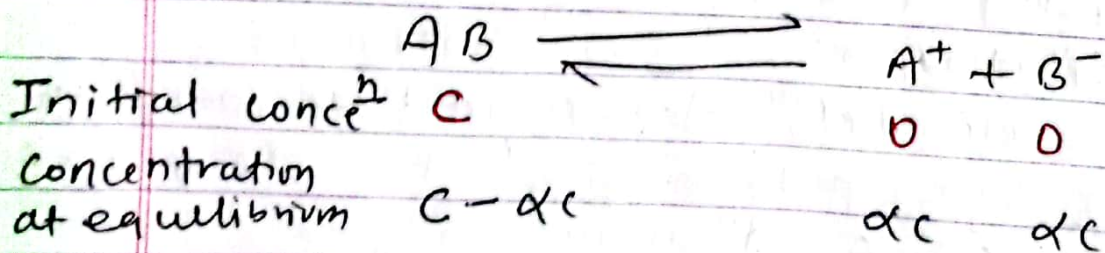 AB ⇌ A⁺ + B⁻
Initial conceⁿ C 0 0
concentration
at equilibrium C - αc αc αc